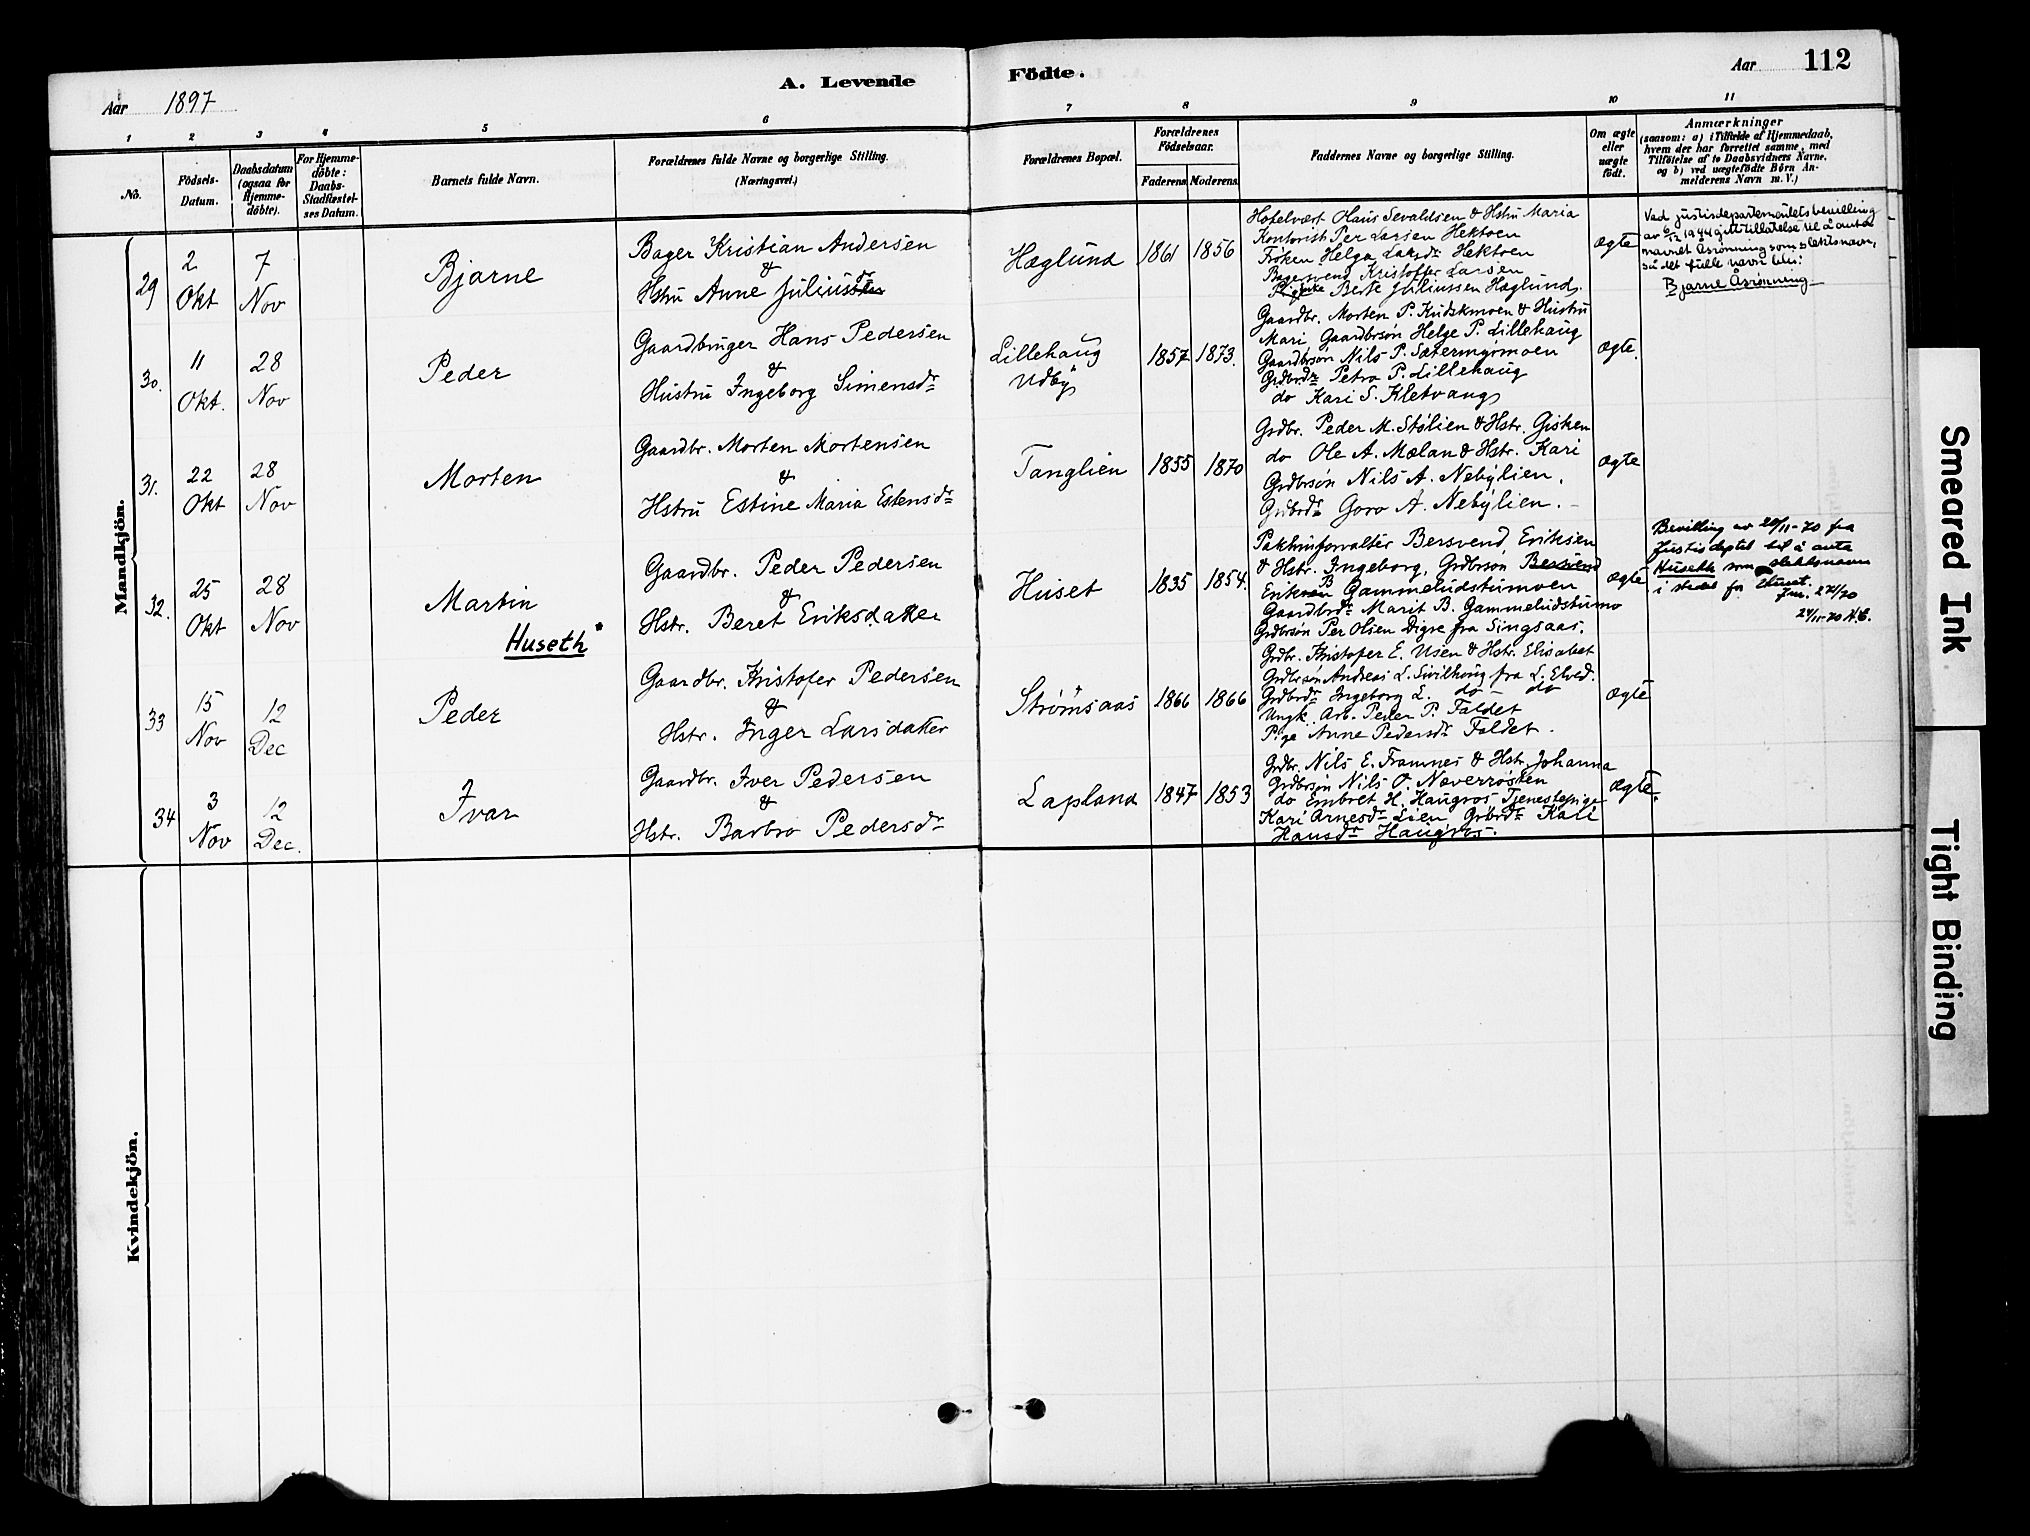 Aar 1897
A. Levende
Födte.
Aar 112
1 2 3 4 5 6 7 8 9 10 11
No.
Födsels-
Datum.
Daabsdatum
(ogsaa for
Hjemme-
döbte).
For Hjemme-
döbte:
Daabs-
Stadfæstel-
ses Datum.
Barnets fulde Navn.
Forældrenes fulde Navne og borgerlige Stilling.
(Næringsvei.)
Forældrenes Bopæl.
Forældrenes
Födselsaar.
Faderens. Moderens.
Faddernes Navne og borgerlige Stilling.
Om ægte
eller
uægte
født.
Anmærkninger
(saasom: a) i Tilfælde af Hjemmedaab,
hvem der har forrettet samme, med
Tilföielse af to Daabsvidners Navne,
og b) ved uægtefödte Börn An-
melderens Navn m. V.)
Mandkjön.
29
2
Okt
7
Nov
Bjarne
Bager Kristian Andersen
&
Hstru Anne Julius
Hæglund
1861 1856
Hotelvært Olaus Sevaldsen & Hstru Maria
Kontorist Per Larsen Hektoen
Frøken Helga Larsdr Hektoen
Bagersvend Kristoffer Larsen
Berte Juliussen Hæglund.
ægte
Ved justisdepartementets bevilling
av 6/12 1944 gitt tillatelse til å anta
navnet Åsrønning som slektsnavn,
så det fulle navn blir:
Bjarne Åsrønning
30.
11
Okt.
28
Nov
Peder
Gaardbruger Hans Pedersen
&
Hustru Ingeborg Simensdr
Lillehaug
Udby
1857 1873.
Gaardbr. Morten P. Kudskmoen & Hustru
Mari Gaardbrsön Helge P. Lillehaug
Gaardbrsön Nils P. Sætermyrmoen
Grdbrdr Petra P. Lillehaug
do Kari S. Kletvang
ægte.
31.
22
Okt
28
Nov
Morten
Gaardbr. Morten Mortensen
&
Hstru Estine Maria Estensdr
Tanglien
1855 1870
Grdbr. Peder M. Stølien & Hstr. Gisken
do Ole A. Mælan & Hstr. Kari
Grdbrsön Nils A. Nebylien.
Grdbrdr Goro A. Nebylien.
ægte
32.
25
Okt
28
Nov
Martin
Huseth*
Gaardbr. Peder Pedersen
&
Hstr. Beret Eriksdatter
Huset
1835 1854.
Pakhusforvalter Bersvend Eriksen
& Hstr. Ingeborg, Grdbrsön Bersvend
B Gammeludstumoen
Gaardbrdr Marit B. Gammeludstumo
Grdbrsön Per Olsen Digre fra Singsaas.
ægte
Bevilling av 20/11-70 fra
Justisdeptet til å anta
Huseth som slektsnavn
i stedet for
33
15
Nov
12
Dec
Peder
Gaardbr. Kristofer Pedersen
&
Hstr. Inger Larsdatter
Strømsaas
1866 1866
Grdbr. Kristofer E. Usen & Hstr. Elisabet
Grdbrsön Andreas L. Sivilhaug fra L. Elved.
Grdbrdr Ingeborg L. do - do
Ungk. Arb. Peder P. Faldet
Pige Anne Pedersdr Faldet.
ægte
34
3
Nov
12
Dec.
Ivar
Gaardbr. Iver Pedersen
&
Hstr. Barbro Pedersdr
Lapland
1847 1853
Grdbr. Nils E. Framnes & Hstr. Johanna
Grdbrsön Nils O. Næverrosken
do Embret H. Haugros Tjenestepige
Kari Arnesdr Lien Grbrdr Kari
Hansdr Haugros.
ægte.
Kvindekjön.
Smeared Ink
Tight Binding